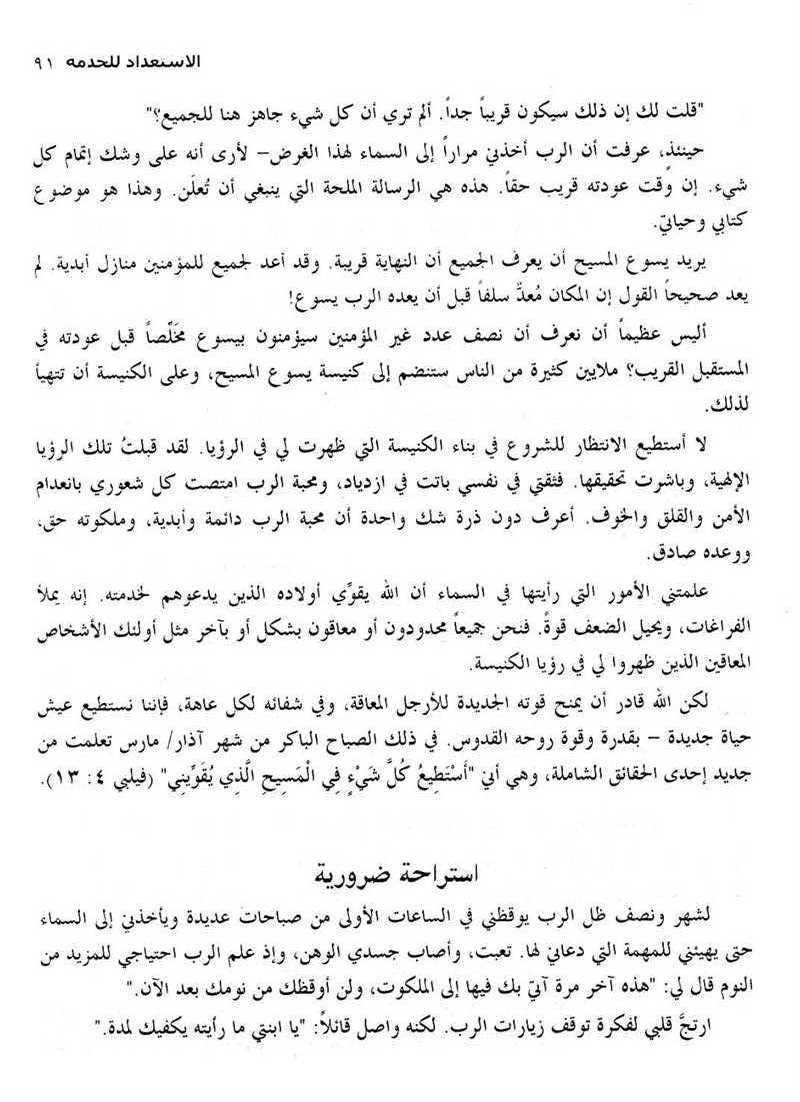 الاستعداد للحدمة ٩١
"قلت لك إن ذلك سيكون قريباً جداً. ألم تري أن كل شيء جاهز هنا للجميع؟"
حينئذٍ، عرفت أن الرب أخذني مراراً إلى السماء لهذا الغرض– لأرى أنه على وشك إتمام كل
شيء. إن وقت عودته قريب حقاً. هذه هي الرسالة الملحة التي ينبغي أن تُعلَن. وهذا هو موضوع
كتابي وحياتي.
يريد يسوع المسيح أن يعرف الجميع أن النهاية قريبة. وقد أعد لجميع للمؤمنين منازل أبدية. لم
يعد صحيحاً القول إن المكان مُعدٌّ سلفاً قبل أن يعده الرب يسوع!
أليس عظيماً أن نعرف أن نصف عدد غير المؤمنين سيؤمنون بيسوع مخَلِّصاً قبل عودته في
المستقبل القريب؟ ملايين كثيرة من الناس ستنضم إلى كنيسة يسوع المسيح، وعلى الكنيسة أن تتهيأ
لذلك.
لا أستطيع الانتظار للشروع في بناء الكنيسة التي ظهرت لي في الرؤيا. لقد قبلتُ تلك الرؤيا
الإلهية، وباشرت تحقيقها. فثقتي في نفسي باتت في ازدياد، ومحبة الرب امتصت كل شعوري بانعدام
الأمن والقلق والخوف. أعرف دون ذرة شك واحدة أن محبة الرب دائمة وأبدية، وملكوته حق،
ووعده صادق.
علمتني الأمور التي رأيتها في السماء أن الله يقوِّي أولاده الذين يدعوهم لخدمته. إنه يملأ
الفراغات، ويحيل الضعف قوةً. فنحن جميعاً محدودون أو معاقون بشكل أو بآخر مثل أولئك الأشخاص
المعاقين الذين ظهروا لي في رؤيا الكنيسة.
لكن الله قادر أن يمنح قوته الجديدة للأرجل المعاقة، وفي شفائه لكل عاهة، فإننا نستطيع عيش
حياة جديدة – بقدرة وقوة روحه القدوس. في ذلك الصباح الباكر من شهر آذار/ مارس تعلمت من
جديد إحدى الحقائق الشاملة، وهي أني "أَسْتَطِيعُ كُلَّ شَيْءٍ فِي الْمَسِيحِ الَّذِي يُقَوِّينِي" (فيلبي ٤: ١٣).
استراحة ضرورية
لشهر ونصف ظل الرب يوقظني في الساعات الأولى من صباحات عديدة ويأخذني إلى السماء
حتى يهيئني للمهمة التي دعاني لها. تعبت، وأصاب جسدي الوهن، وإذ علم الرب احتياجي للمزيد من
النوم قال لي: "هذه آخر مرة آتي بك فيها إلى الملكوت، ولن أوقظك من نومك بعد الآن."
ارتجَّ قلبي لفكرة توقف زيارات الرب. لكنه واصل قائلاً: "يا ابنتي ما رأيته يكفيك لمدة."